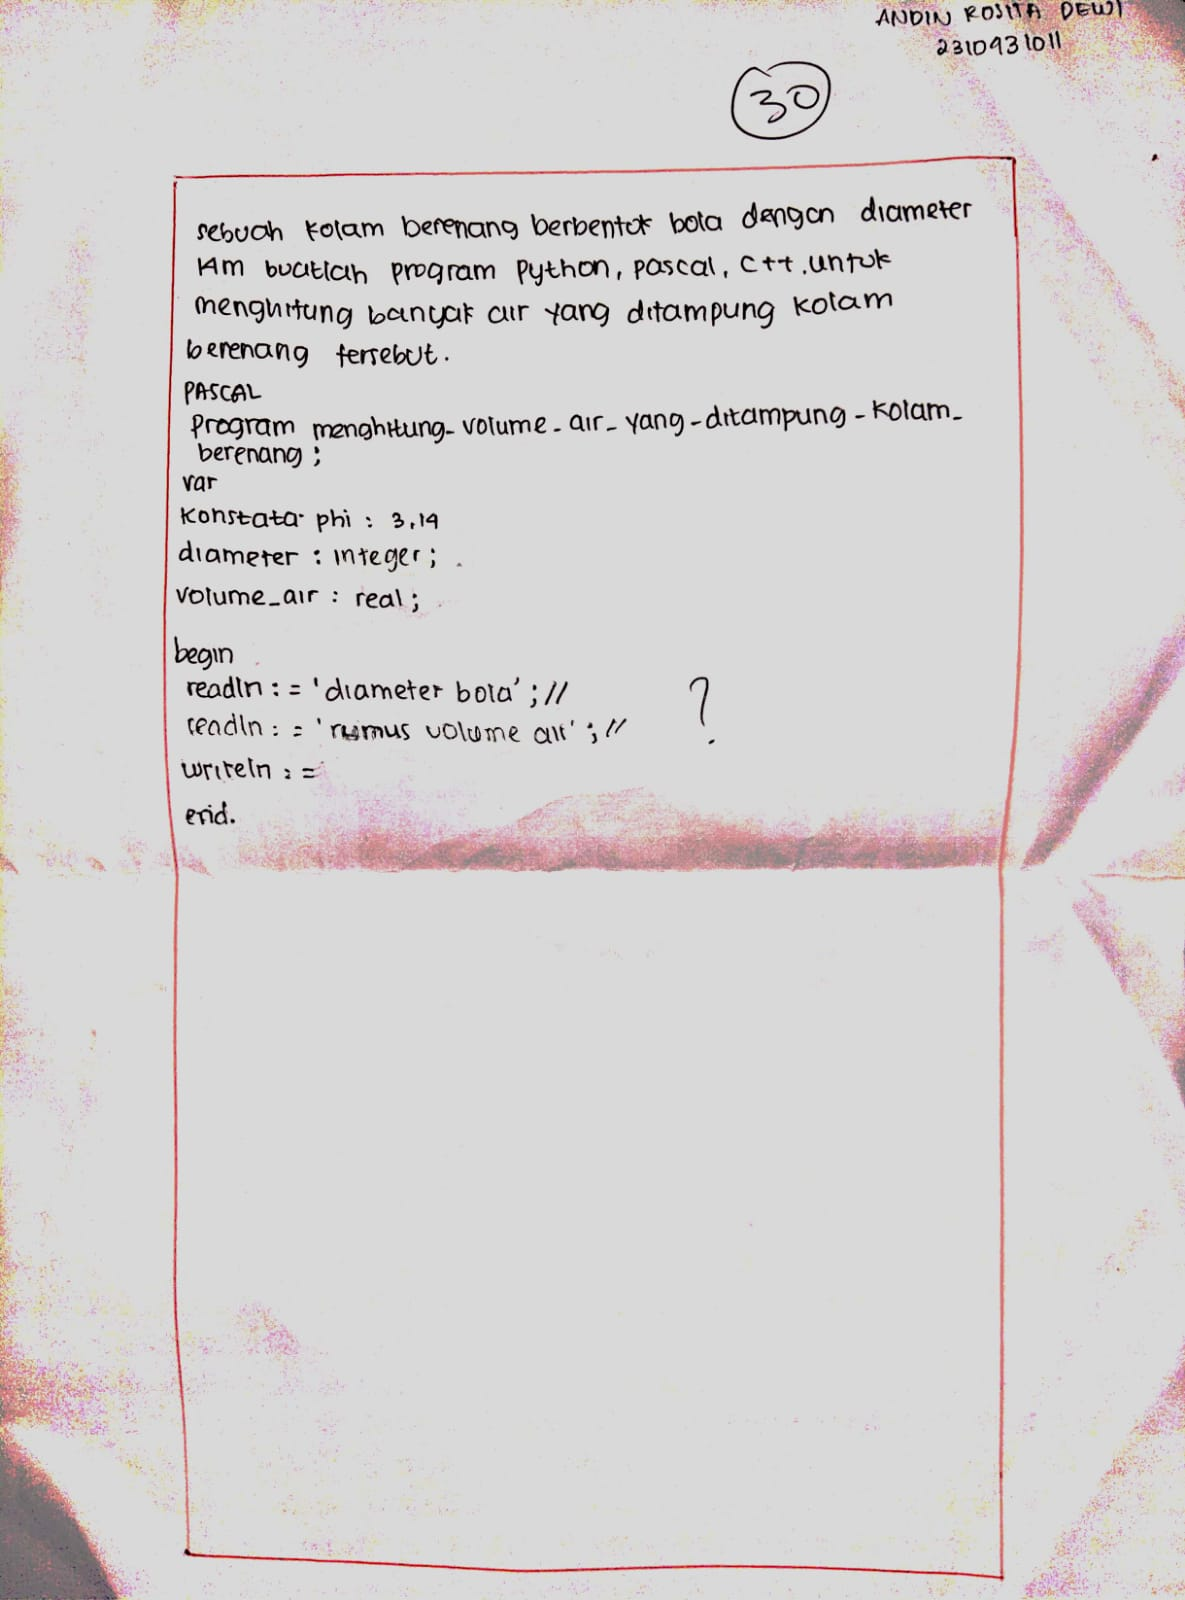 ANDIN ROSITA DEWI
2310931011
30
sebuah kolam berenang berbentuk bola dengan diameter
14m buatlah program Python, pascal, C++. untuk
menghitung banyak air yang ditampung kolam
berenang tersebut.
PASCAL
Program menghitung_volume_air_yang_ditampung_kolam_
berenang;
var
konstata phi : 3,14
diameter : integer;
volume_air : real;
begin
readln := 'diameter bola'; //
readln := 'rumus volume air'; //
?
writeln :=
end.